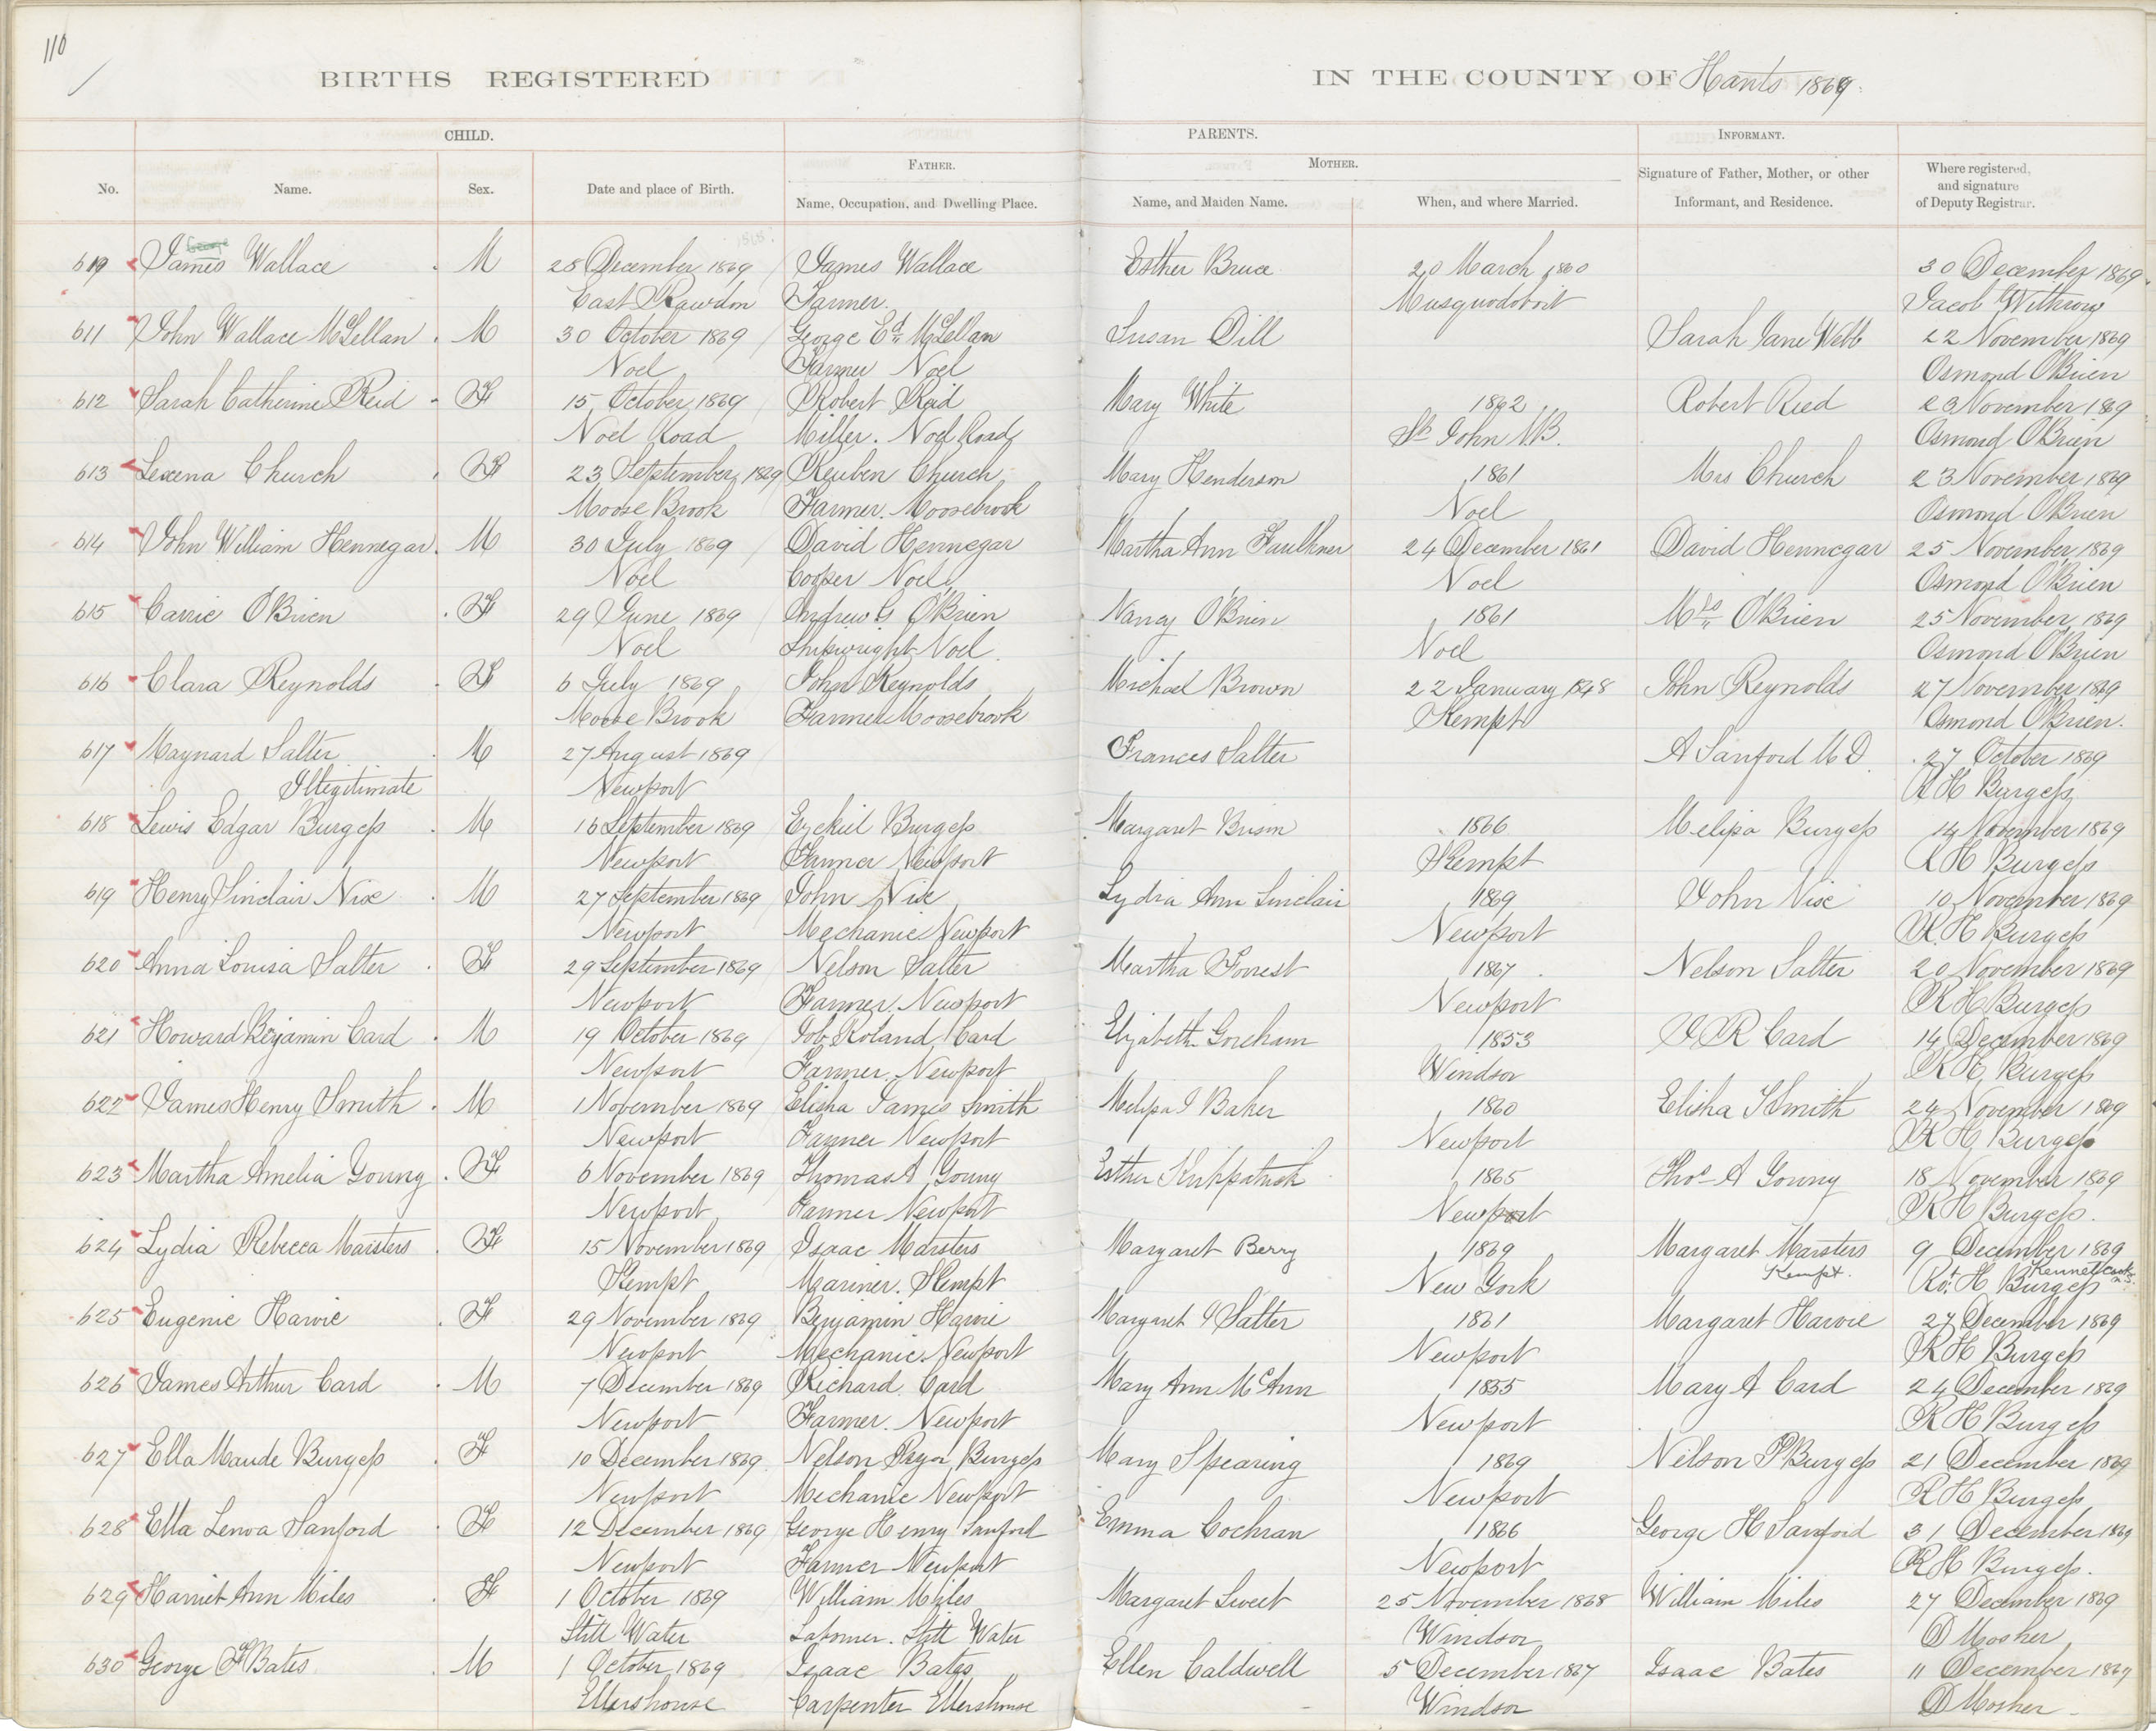 110
BIRTHS REGISTERED IN THE COUNTY OF Hants 1869.
CHILD. PARENTS. INFORMANT.
No. Name. Sex. Date and place of Birth. FATHER. Name, Occupation, and Dwelling Place. MOTHER. Name, and Maiden Name. When, and where Married. Signature of Father, Mother, or other Informant, and Residence. Where registered, and signature of Deputy Registrar.
George
619 James Wallace M 28 December 1869 James Wallace Esther Bruce 20 March 1860 30 December 1869
East Rawdon Farmer. Musquodoboit Jacob Withrow
611 John Wallace McLellan M 30 October 1869 George Ed McLellan Susan Dill Sarah Jane Webb 22 November 1869
Noel Farmer Noel Osmond O'Brien
612 Sarah Catherine Reid F 15 October 1869 Robert Reid Mary White 1862 Robert Ried 23 November 1869
Noel Road Miller. Noel Road St John N.B. Osmond O'Brien
613 Lexena Church F 23 September 1869 Reuben Church Mary Henderson 1861 Mrs Church 23 November 1869
Moose Brook Farmer. Moosebrook Noel Osmond O'Brien
614 John William Hennegar M 30 July 1869 David Hennegar Martha Ann Faulkner 24 December 1861 David Hennegar 25 November 1869
Noel Cooper Noel Noel Osmond O'Brien
615 Carrie O'Brien F 29 June 1869 Andrew G O'Brien Nancy O'Brien 1861 Mrs O'Brien 25 November 1869
Noel Shipwright Noel Noel Osmond O'Brien
616 Clara Reynolds F 6 July 1869 John Reynolds Michael Brown 22 January 1848 John Reynolds 27 November 1869
Moose Brook Farmer Moosebrook Kempt Osmond O'Brien.
617 Maynard Salter M 27 August 1869 Frances Salter A Sanford M D 27 October 1869
Illegitimate Newport R H Burgess
618 Lewis Edgar Burgess M 16 September 1869 Ezekiel Burgess Margaret 1866 Melissa Burgess 14 November 1869
Newport Farmer Newport Kempt R H Burgess
619 Henry Sinclair Nix M 27 September 1869 John Nix Lydia Ann Sinclair 1869 John Nix 10 November 1869
Newport Mechanic Newport Newport R. H Burgess
620 Anna Louisa Salter F 29 September 1869 Nelson Salter Martha Forrest 1867 Nelson Salter 20 November 1869
Newport Farmer. Newport Newport R H Burgess
621 Howard Benjamin Card M 19 October 1869 Job Roland Card Elizabeth Goreham 1853 J R Card 14 December 1869
Newport Farmer. Newport Windsor R H Burgess
622 James Henry Smith M 1 November 1869 Elisha James Smith Melissa J Baker 1860 Elisha J Smith 24 November 1869
Newport Farmer Newport Newport R H Burgess
623 Martha Amelia Young F 6 November 1869 Thomas A Young Esther Kirkpatrick 1865 Thos A Young 18 November 1869
Newport Farmer Newport Newport R H Burgess.
624 Lydia Rebecca Marsters F 15 November 1869 Isaac Marsters Margaret Berry 1869 Margaret Marsters 9 December 1869
Kempt Mariner. Kempt New York Kempt. Rot. H Burgess Kennetcook N.S.
625 Eugenie Harvie F 29 November 1869 Benjamin Harvie Margaret J Salter 1861 Margaret Harvie 27 December 1869
Newport Mechanic. Newport Newport R H Burgess
626 James Arthur Card M 7 December 1869 Richard Card Mary Ann McAnn 1855 Mary A Card 24 December 1869
Newport Farmer. Newport Newport R H Burgess
627 Ella Maude Burgess F 10 December 1869 Nelson Pryor Burgess Mary Spearing 1869 Nelson P Burgess 21 December 1869
Newport Mechanic Newport Newport R H Burgess
628 Etta Lenoa Sanford F 12 December 1869 George Henry Sanford Emma Cochran 1866 George H Sanford 31 December 1869
Newport Farmer Newport Newport R H Burgess.
629 Harriet Ann Miles F 1 October 1869 William Miles Margaret Sweet 25 November 1868 William Miles 27 December 1869
Still Water Labourer. Still Water Windsor D Mosher
630 George F Bates M 1 October 1869 Isaac Bates Ellen Caldwell 5 December 1867 Isaac Bates 11 December 1869
Ellershouse Carpenter Ellershouse Windsor D Mosher